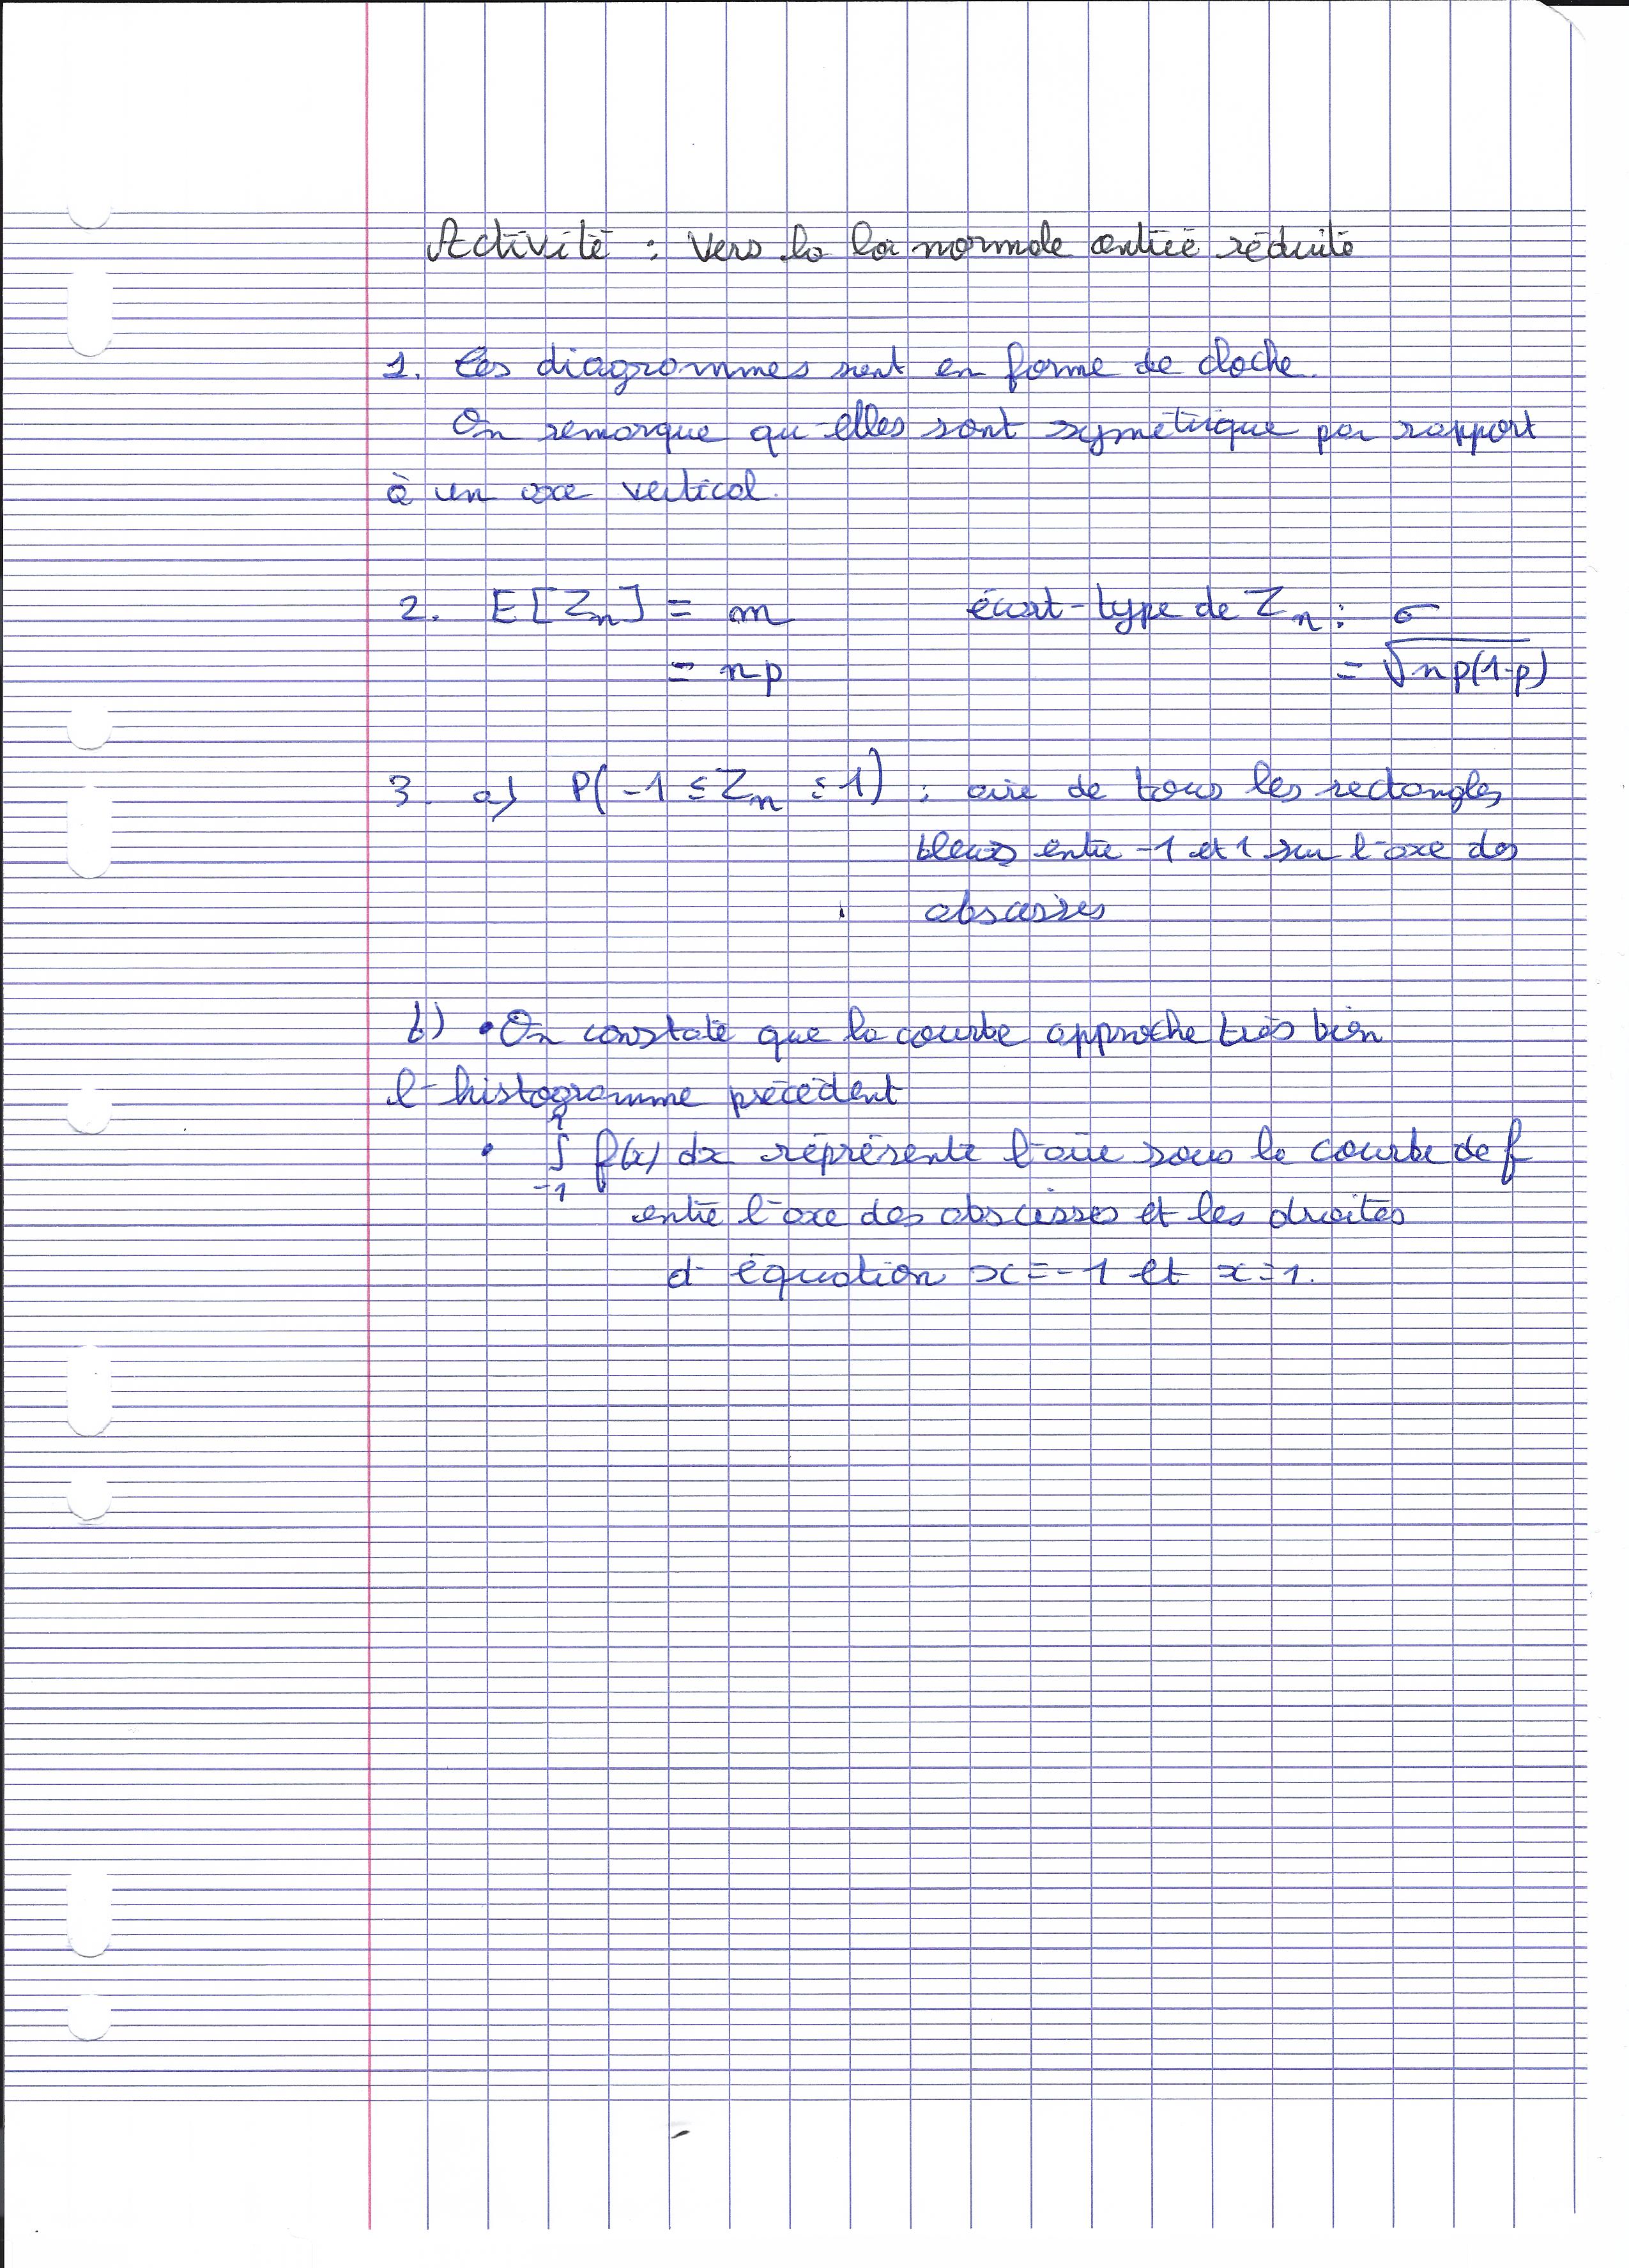 Activité : Vers la loi normale centrée réduite
1. Les diagrammes sont en forme de cloche.
On remarque qu'elles sont symétrique par rapport
à un axe vertical.
2. E[Zn] = m écart-type de Zn : σ
= np = √np(1-p)
3. a) P(-1 ≤ Zn ≤ 1) : aire de tous les rectangles
bleus entre -1 et 1 sur l'axe des
abscisses
b) • On constate que la courbe approche très bien
l'histogramme précédent
• ∫₋₁¹ f(x) dx représente l'aire sous la courbe de f
entre l'axe des abscisses et les droites
d'équation x = -1 et x = 1.